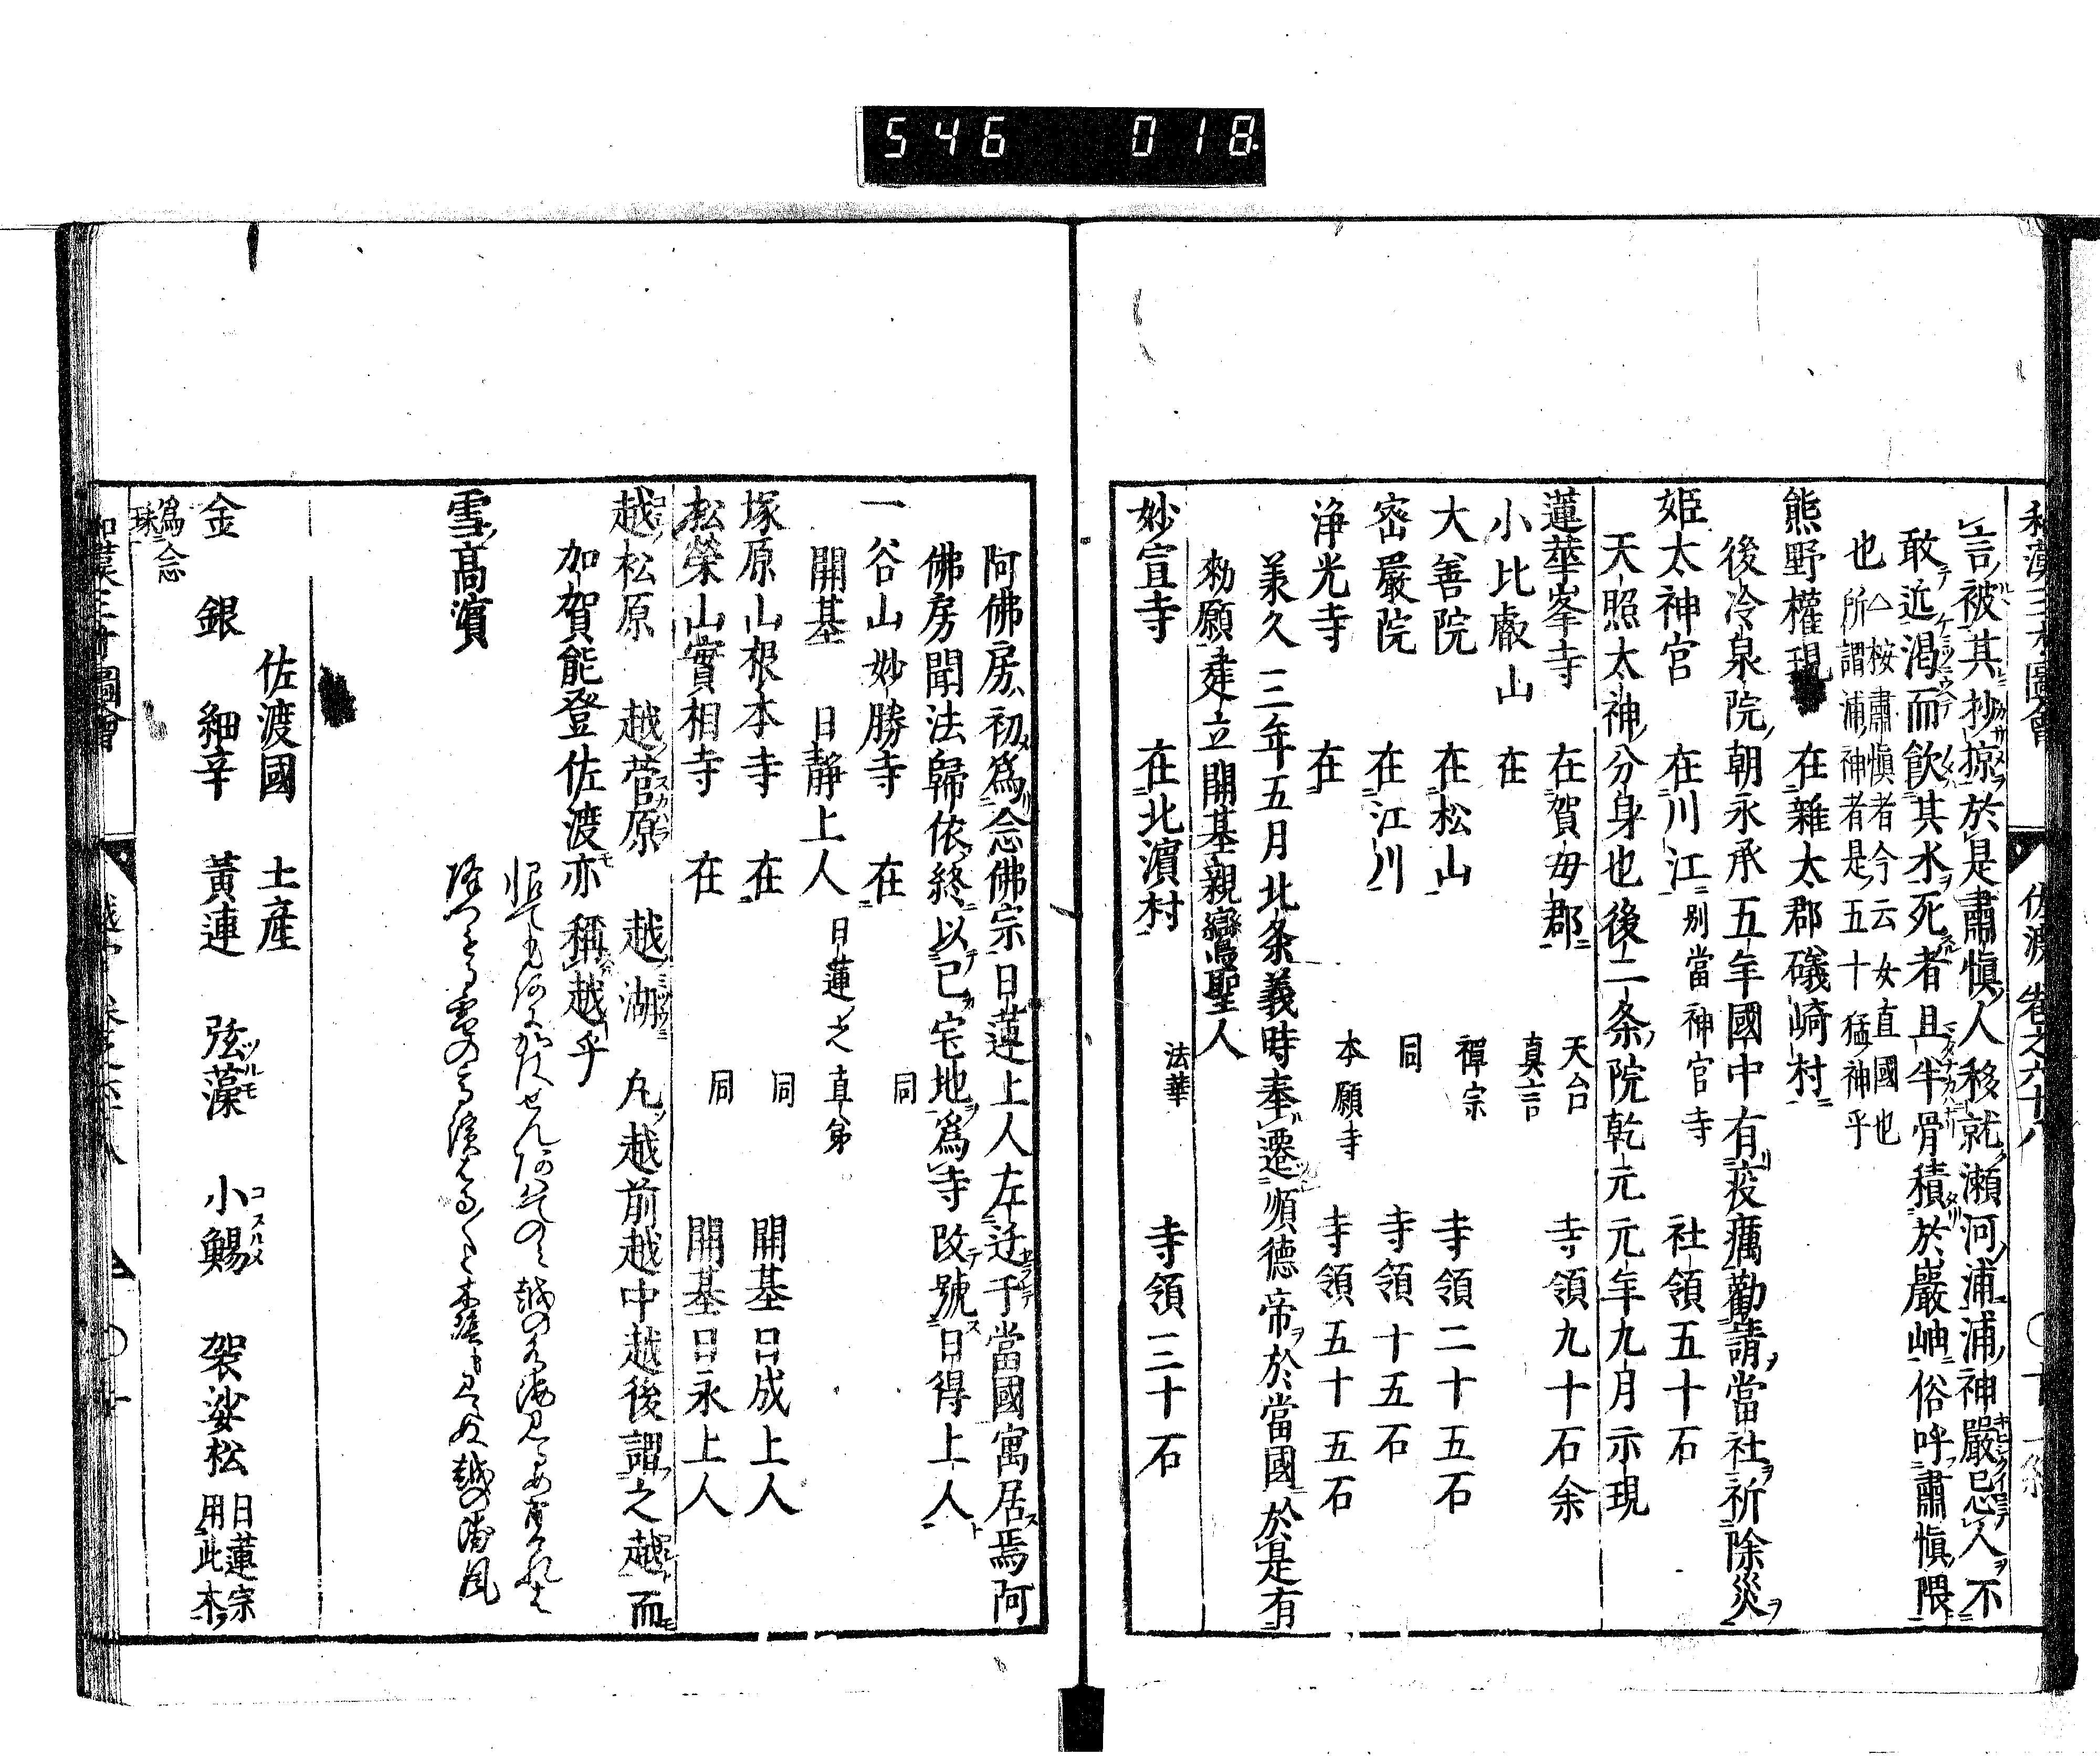 546 018
和漢三才圖會 佐渡 卷之六十八
言被其抄掠於是肅愼人移就瀬河浦浦神嚴忌人不
敢近渇而飲其水死者且半骨積於巖岫俗呼肅愼隈
也 △桉肅愼者今云女直國也
所謂浦神者是五十猛神乎
熊野權現 在雜太郡礒崎村
後冷泉院朝永承五年國中有疫癘勸請當社祈除災
姫太神宮 在川江 別當神宮寺 社領五十石
天照太神分身也後二条院乾元元年九月示現
蓮華峯寺 在賀毎郡 天台 寺領九十石余
小比叡山 在 真言
大善院 在松山 禪宗 寺領二十五石
密嚴院 在江川 同 寺領十五石
浄光寺 在 本願寺 寺領五十五石
兼久三年五月北条義時奉遷順德帝於當國於是有
勅願建立開基親鸞聖人
妙宣寺 在北濱村 法華 寺領三十石
阿佛房初爲念佛宗日蓮上人左迁于當國寓居焉阿
佛房聞法歸依終以已宅地爲寺改號日得上人
一谷山妙勝寺 在 同
開基 日靜上人 日蓮之直弟
塚原山根本寺 在 同 開基日成上人
松榮山實相寺 在 同 開基日永上人
越松原 越菅原 越湖 凡越前越中越後謂之越而
加賀能登佐渡亦稱越乎
雪高濱
佐渡國 土產
金 銀 細辛 黃連 弦藻 小鯣 袈娑松 日蓮宗
用此木
爲念
珠